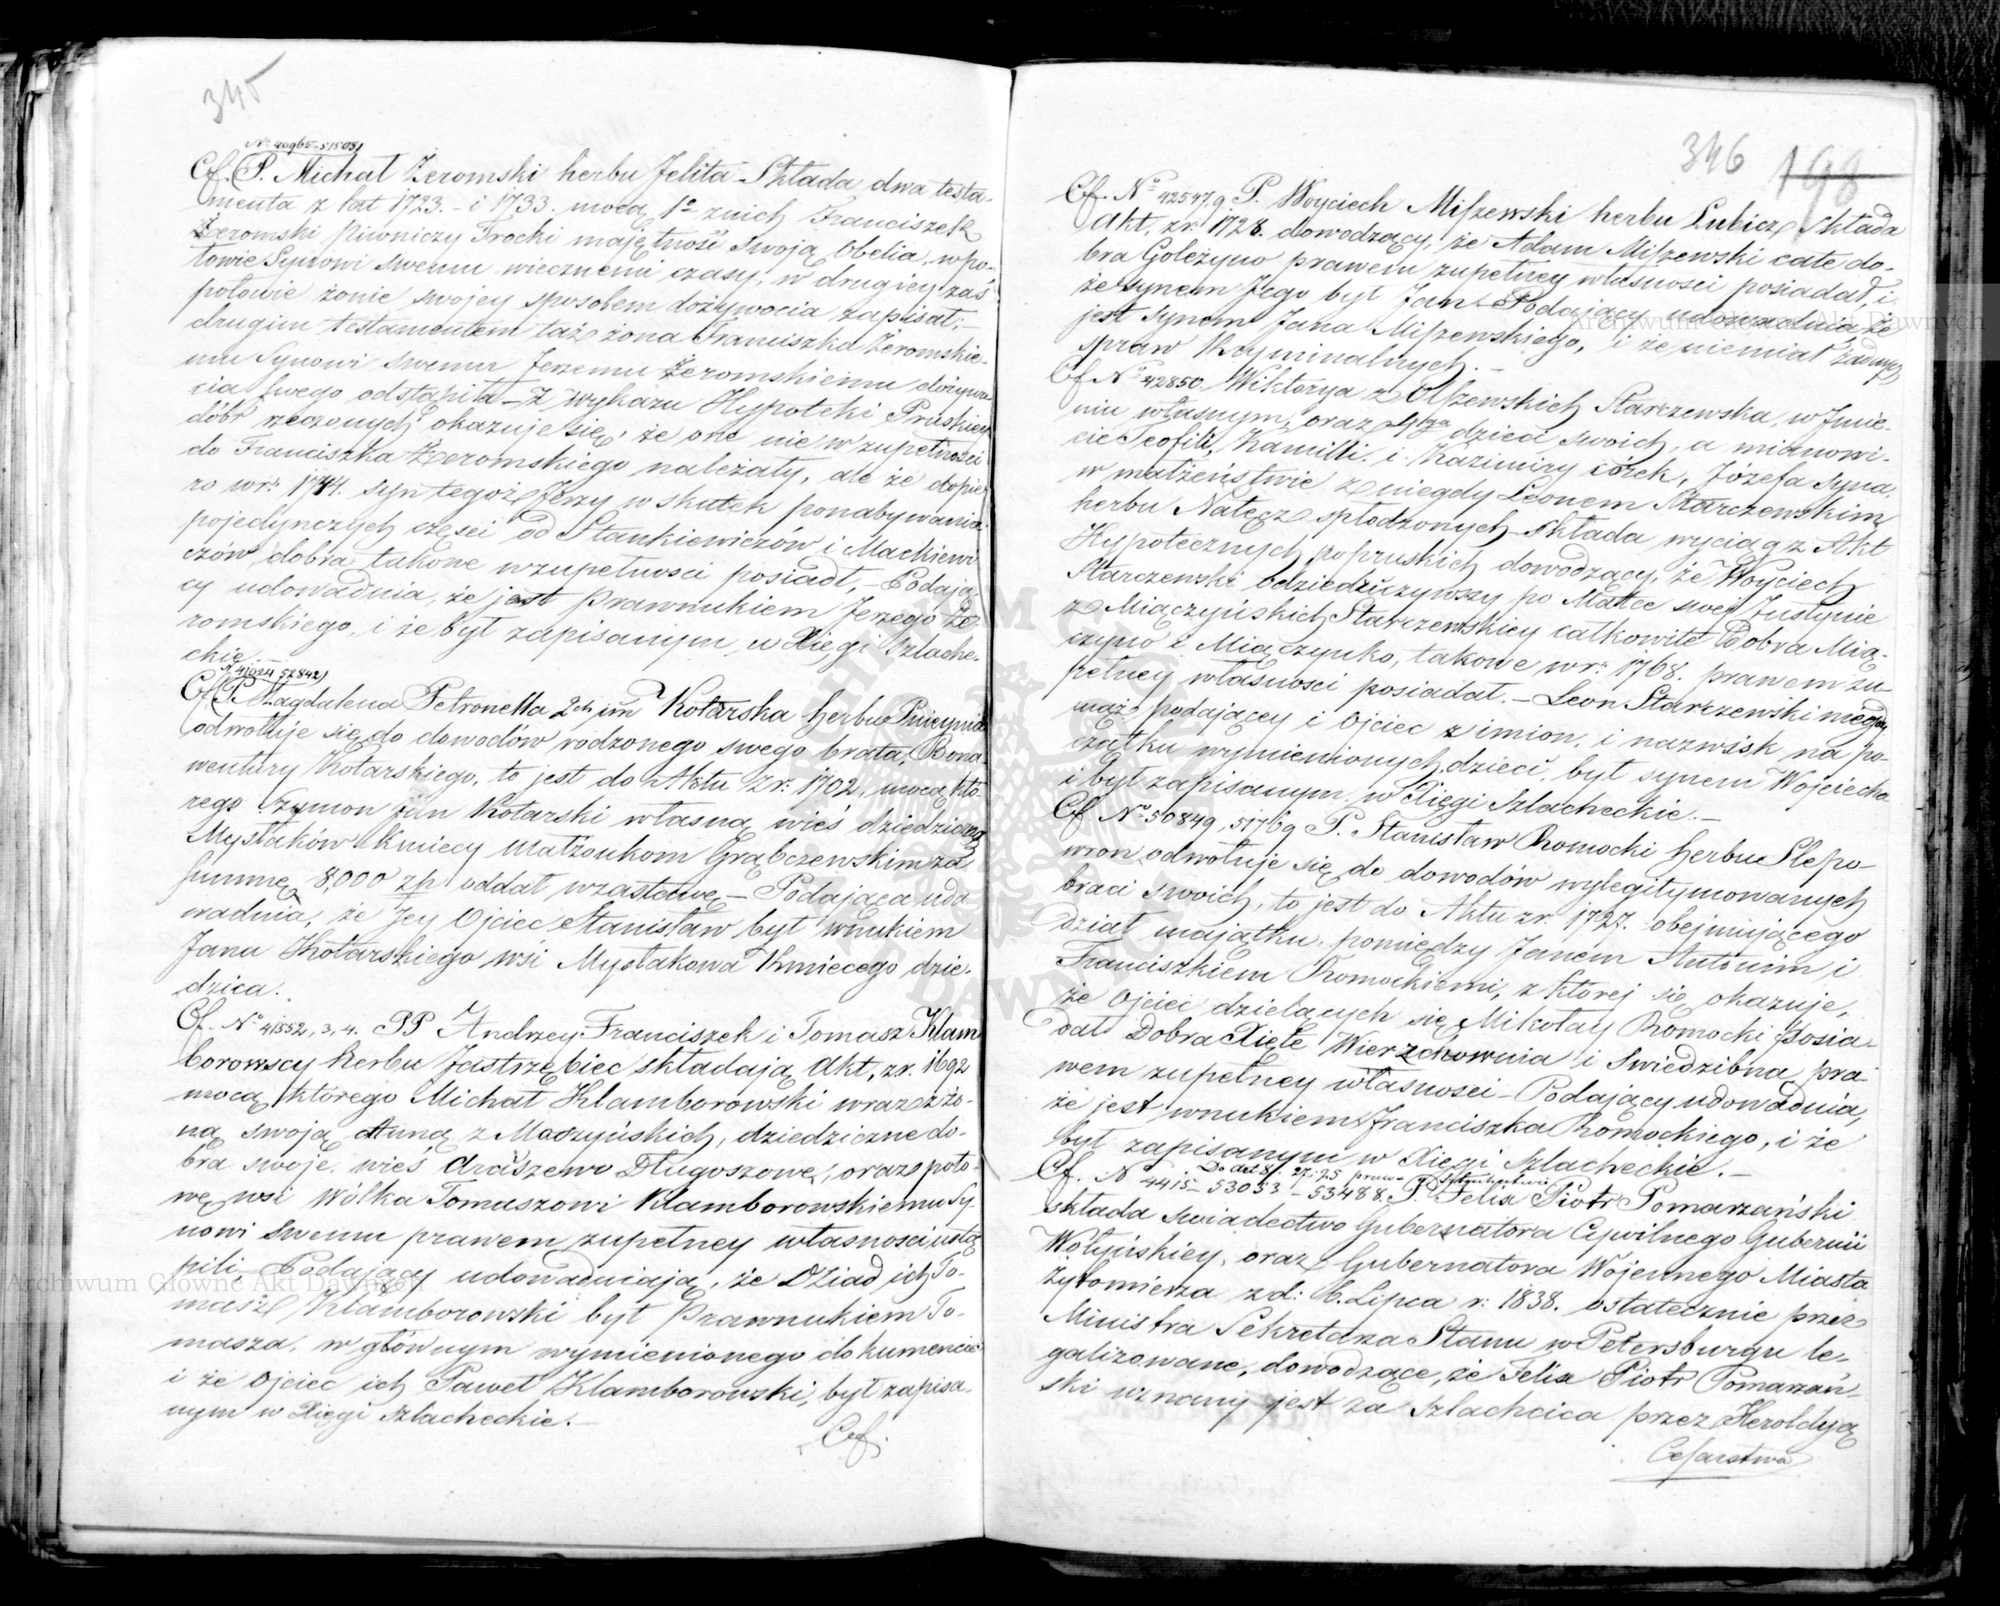 345
No 40965-51508
Cf. P. Michał Żeromski herbu Jelita Składa dwa testa-
menta z lat 1723. - i 1733. mocą 1o z nich Franciszek
Żeromski Piwniczy Trocki majętność swoją Obelia, w po-
łowie Synowi swemu wiecznemi czasy, w drugiey zaś
połowie żonie swojey sposobem dożywocia zapisał; -
drugim testamentem taż żona Franciszka Żeromskie-
mu Synowi swemu Jerzemu Żeromskiemu dożywo-
cia swego odstąpiła - Z wykazu Hypoteki Pruskiey
dóbr rzeczonych okazuje się, że one nie w zupełności
do Franciszka Żeromskiego należały, ale że dopie-
ro w r: 1744. syn tegoż Jerzy w skutek ponabywania
pojedynczych części od Stankiewiczów i Mackiewi-
czów dobra takowe w zupełności posiadł, - Podają-
cy udowadnia, że jest Prawnukiem Jerzego Że-
romskiego, i że był zapisanym w Xięgi szlache-
ckie. -
41024 52842
Cf. P. Magdalena Petronella 2ch im Kotarska herbu Pniejnia
odwołuje się do dowodów rodzonego swego brata, Bona-
wentury Kotarskiego, to jest do Aktu z r: 1702, mocą któ-
rego Szymon Jan Kotarski własną wieś dziedziczną
Mystaków Kmiecy małżonkom Grąbczewskim za
summę 8,000 zh oddał w zastawę - Podająca udo
wadnia, że Jey Ojciec Stanisław był wnukiem
Jana Kotarskiego wsi Mystakowa Kmiecego dzie-
dzica.
Cf. No 41552, 3, 4. PP Andrzey Franciszek i Tomasz Klam
borowscy herbu Jastrzębiec składają Akt, z r. 1692
mocą którego Michał Klamborowski wraz z żo-
ną swoją Anną z Maszyńskich, dziedziczne do-
bra swoje wieś Draszewo Długoszowe, oraz poło-
wę wsi Wólka Tomaszowi Klamborowskiemu Sy-
nowi swemu prawem zupełney własności ustą
pili - Podający udowadniają, że Dziad ich To-
masz Klamborowski był Prawnukiem To-
masza, w głównym wymienionego dokumencie
i że Ojciec ich Paweł Klamborowski, był zapisa-
nym w Xięgi szlacheckie. -
Cf.
346 198
Cf. No 42547.9 P. Woyciech Miszewski herbu Lubicz Składa
Akt, z r: 1728. dowodzący, że Adam Miszewski całe do-
bra Goleżyno prawem zupełney własności posiadał, i
że synem Jego był Jan - Podający udowadnia, że
jest synem Jana Miszewskiego, i że niemiał żadnych
spraw kryminalnych. -
Cf No 42850. Wiktorya z Olszewskich Starczewska, w Imie-
niu własnym, oraz 4rga dzieci swoich, a mianowi-
cie Teofili, Kamilli i Kazimiry córek, Józefa syna,
w małżeństwie z niegdy Leonem Starczewskim
herbu Nałęcz spłodzonych składa wyciąg z Akt
Hypotecznych popruskich dowodzący, że Woyciech
Starczewski odziedziczywszy po Matce swej Justynie
z Miączyńskich Starczewskiey całkowite Dobra Mią-
czyno i Miączynko, takowe w r: 1768. prawem zu-
pełney własności posiadał. - Leon Starczewski niegdy
mąż podającey i Ojciec z imion i nazwisk na po-
czątku wymienionych dzieci, był synem Wojciecha
i był zapisanym w Xięgi szlacheckie. -
Cf No 50849, 51769 P. Stanisław Romocki herbu Slepo-
wron odwołuje się do dowodów wylegitymowanych
braci swoich, to jest do Aktu z r. 1727. obejmującego
dział majątku pomiędzy Janem Antonim i
Franciszkiem Romockiemi, z którey się okazuje,
że Ojciec dzielących się Mikołay Romocki posia-
dał Dobra Xięte Wierzchownia i Swiedzibna pra-
wem zupełney własności - Podający udowadnia,
że jest wnukiem Franciszka Romockiego, i że
był zapisanym w Xięgi szlacheckie. -
Cf. No 4415 - 53053 - 53488 P. Felix Piotr Pomarzański
składa swiadectwo Gubernatora Cywilnego Gubernii
Wołyńskiey, oraz Gubernatora Wojennego Miasta
Żytomierza z d: 6. Lipca r: 1838. ostatecznie przez
Ministra Sekretarza Stanu w Petersburgu le-
galizowane, dowodzące, że Felix Piotr Pomarzań-
ski uznany jest za szlachcica przez Heroldyą
Cesarstwa
Archiwum Główne Akt Dawnych
Archiwum Główne Akt Dawnych